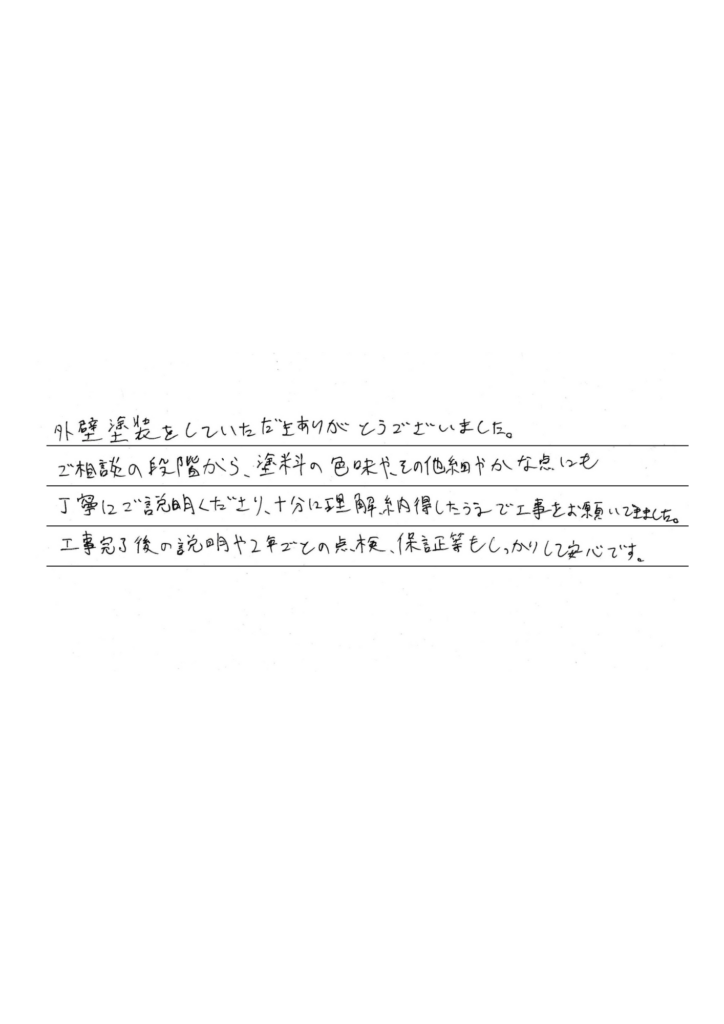 外壁塗装をしていただきありがとうございました。
ご相談の段階から、塗料の色味や、その他細やかな点にも
丁寧にご説明くださり、十分に理解、納得したうえで工事をお願いできました。
工事完了後の説明や2年ごとの点検、保証等もしっかりして安心です。